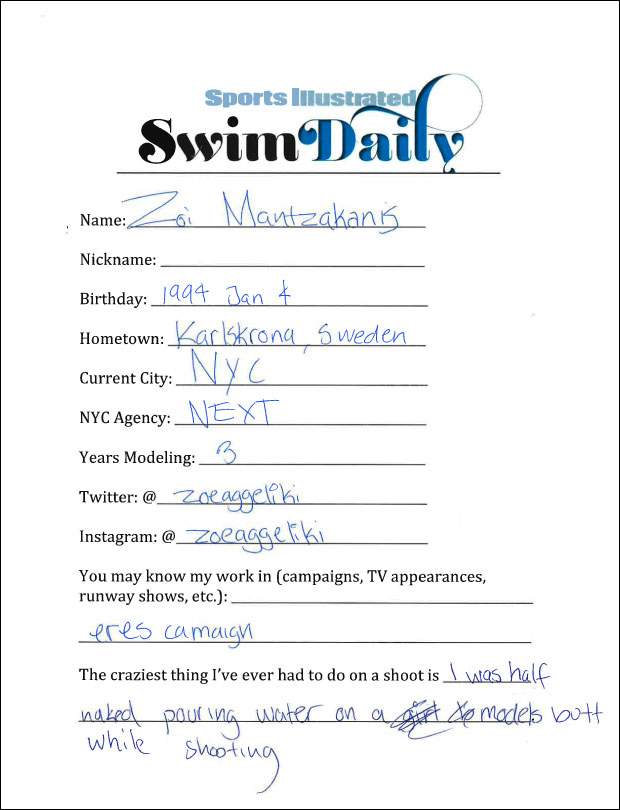 Sports Illustrated
Swim Daily
Name: Zoi Mantzakanis
Nickname:
Birthday: 1994 Jan 4
Hometown: Karlskrona, Sweden
Current City: NYC
NYC Agency: NEXT
Years Modeling: 3
Twitter: @ zoeaggeliki
Instagram: @ zoeaggeliki
You may know my work in (campaigns, TV appearances,
runway shows, etc.):
eres camaign
The craziest thing I've ever had to do on a shoot is I was half
naked pouring water on a models butt
while shooting